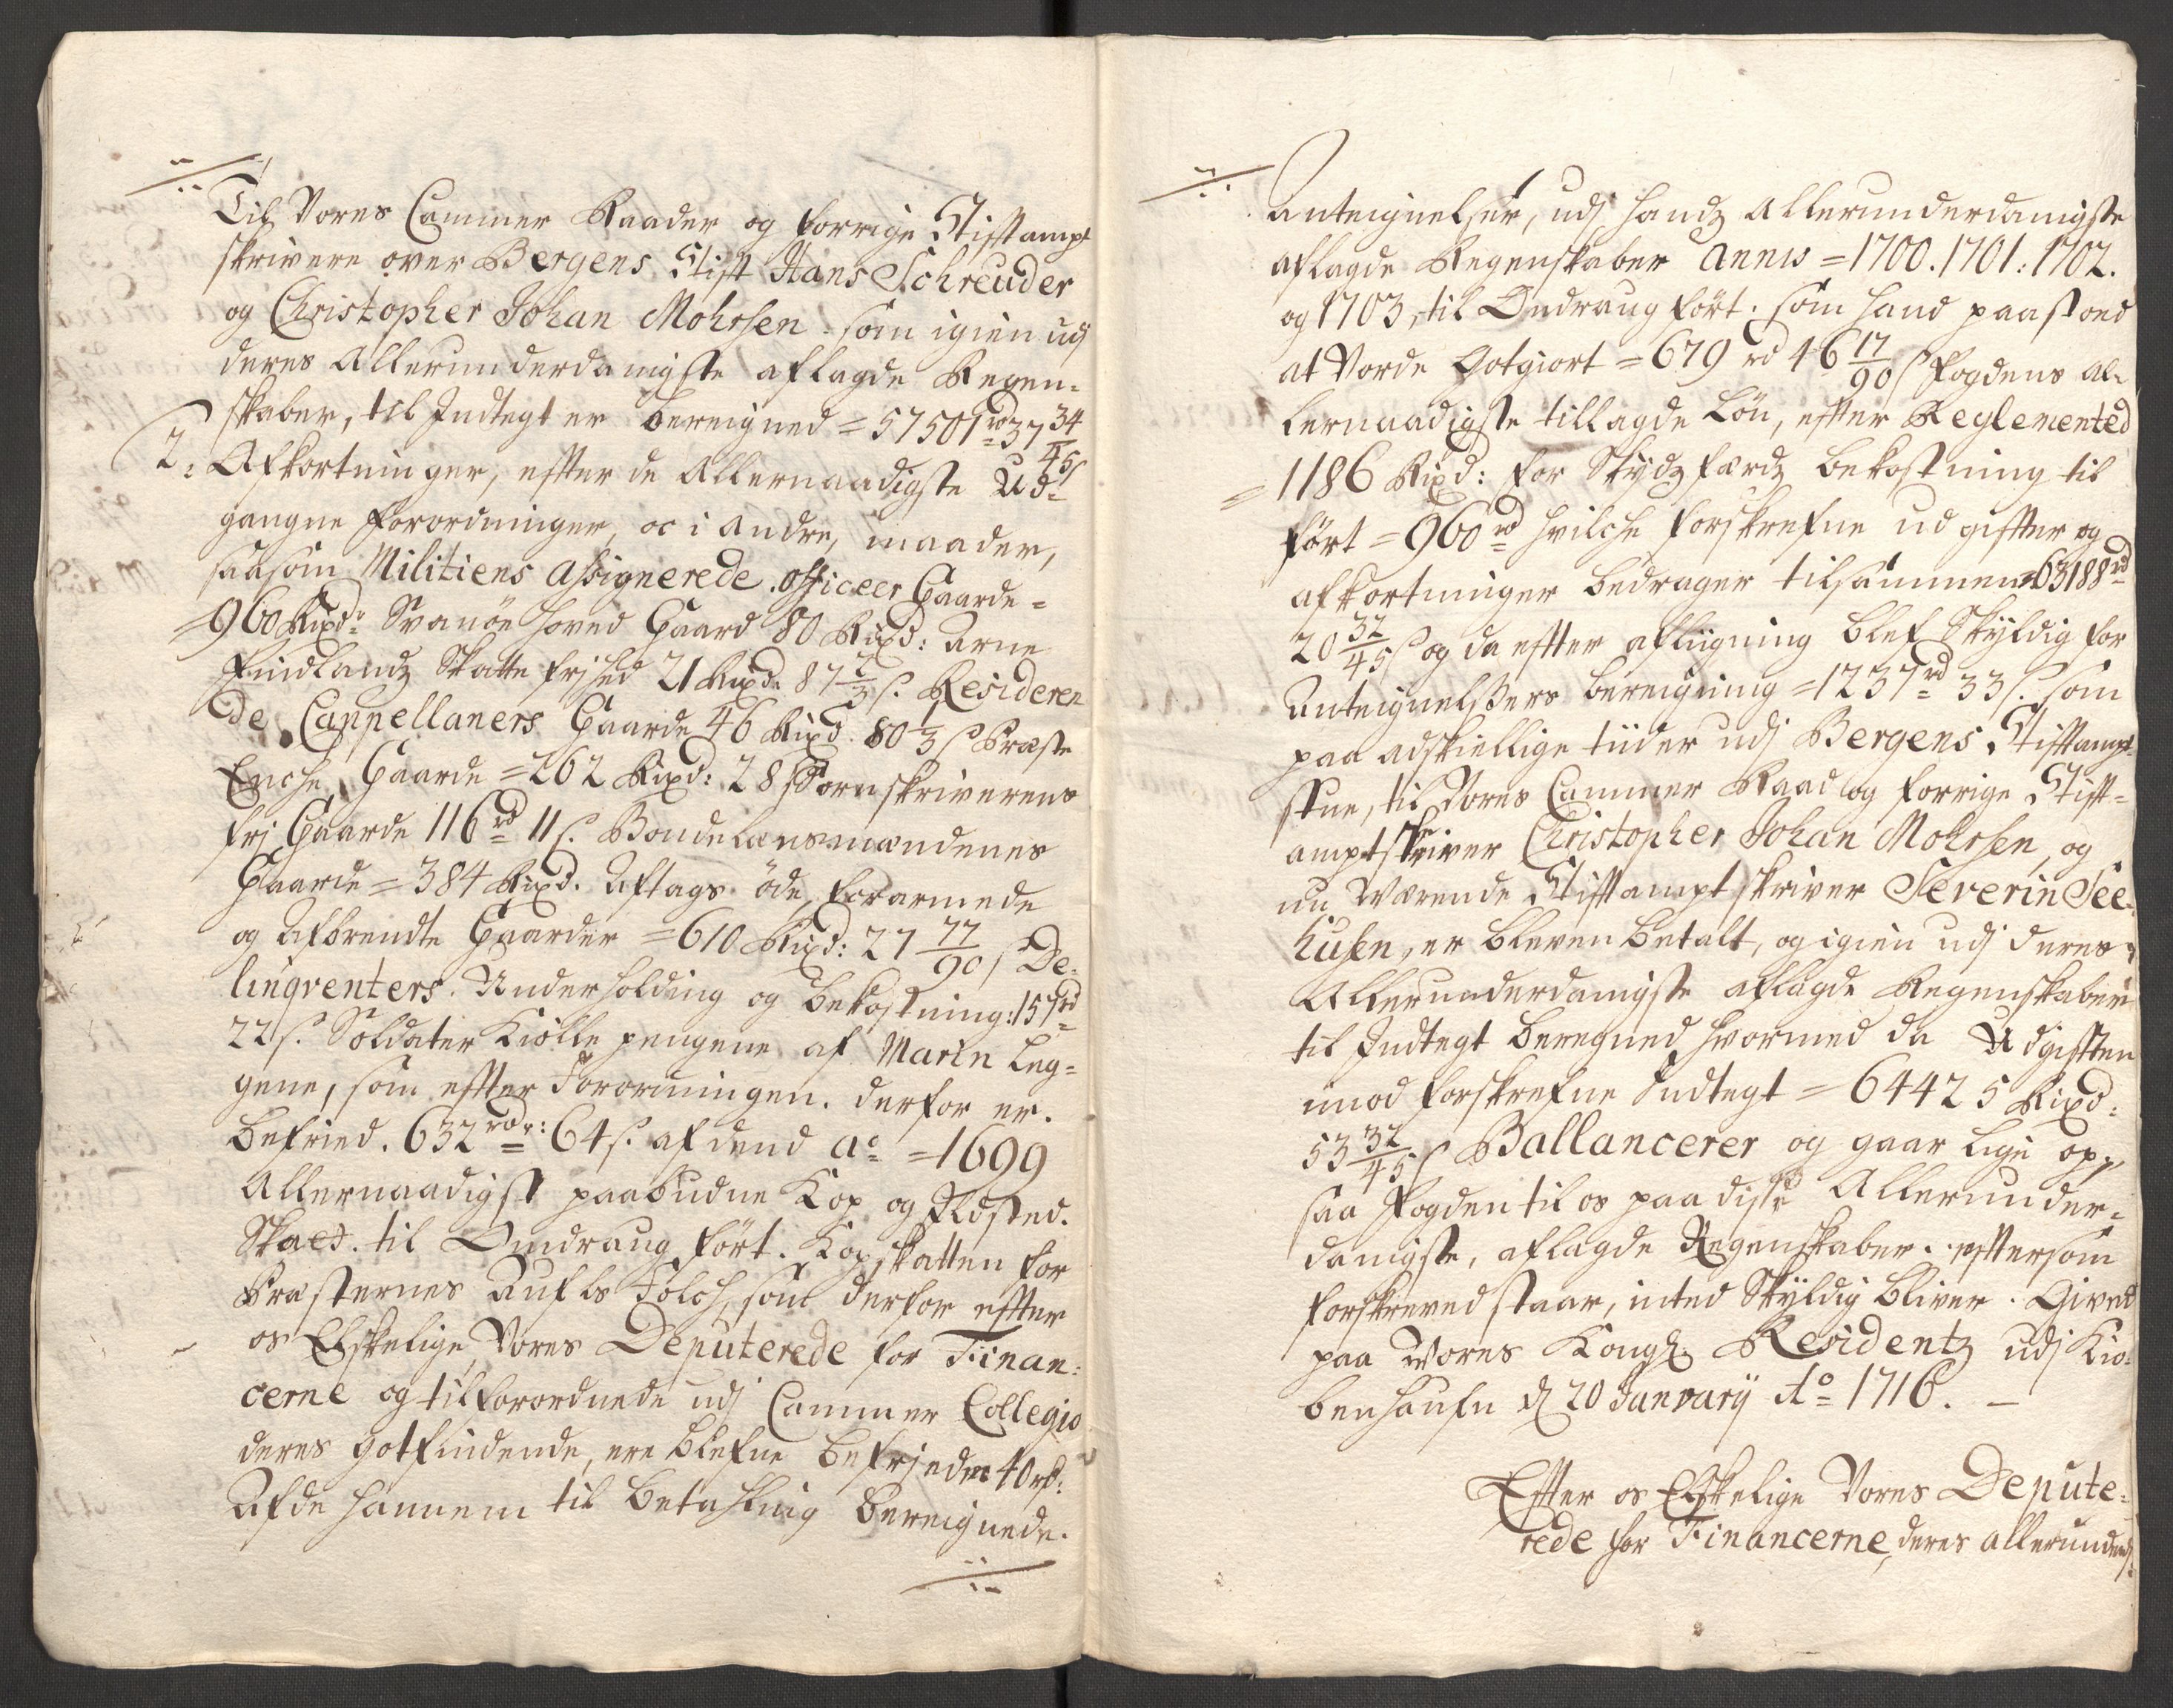 Til Vores Cammer Raader og forrige Stiftampt
skrivere over Bergens Stift Hans Schreuder
og Christopher Johan Mohrsen som igien udj
deres Allerunderdanigste aflagde Regen-
skaber, til Indtegt er bereigned = 57501 rd 37 34/45 s
2: Afkortninger, efter de Allernaadigste Ud-
gangne forordninger, oc i andre, maader,
saasom Militiens Assignerede officeer Gaarde =
= 960 Rixd: Svanöe hoved Gaard 80 Rixd: Arne
Findlandz Skatte frjhed 21 Rixd: 87 2/3 s. Resideren
de Cappellaners Gaarde 46 Rixd. 80 1/3 s Præste
Enche Gaarde = 262 Rixd: 28 s Sorenskriverens
frj Gaarde 116 rd 11 s. Bondelænsmændenes
Gaarde = 384 Rixd. Aftags öde, forarmede
og Afbrendte Gaarder = 610 Rixd: 27 77/90 s De-
linqventers Underholding og bekostning: 157 rd
22 s. Soldater Kiolle pengene af Marin Leg-
gene, som efter Forordningen derfor er.
befried. 632 rdr: 64 s. af dend Ao = 1699
Allernaadigst paabudne Kop og Ildsted.
Skat. til Omdraug fört. Kopskatten for
Præsternes Folch, som derfor efter
os Elskelige Vores Deputerede for Finan:
cerne og tilforordnede udj Cammer Collegio
deres gotfindende, ere blefne befrjede 40 rd:
Af de hannem til betahling bereignede.
Anteignelser, udj handz Allerunderdanigste
aflagde Regenskaber Annis = 1700. 1701: 1702.
og 1703, til Omdraug fört. som hand paastoed
at Vorde Gotgiort = 679 rd 46 17/90 s Fogdens al-
lernaadigste tillagde Lön, efter Reglemented
= 1186 Rixd: for Skydzferdz bekostning til
fört = 960 rd hvilche forskrefne ud gifter og
afkortninger bedrager tilsammen = 63188 rd
20 32/45 s og da efter afliigning blef Skyldig for
Anteignelßers bereigning = 1237 rd 33 s. som
paa adskiellige tiider udj Bergens Stiftampt
stue, til Vores Cammer Raad og forrige Stift-
amptskriver Christopher Johan Mohrsen, og
nu Værende Stiftamptskriver Severin See-
husen, er bleven betalt, og igien udj deres
Allerunderdanigste aflagde Regenskaber
til Indtegt beregned hvormed da Udgiften
imod forskrefne Indtegt = 64425 Rixd:
53 32/45 s Ballancerer og gaar lige op,
saa Fogden til os paa disse Allerunder-
danigste, aflagde Regenskaber. eftersom
forskreved staar, inted Skyldig bliver. Gived
paa Vores Kongl. Residentz udj Kio-
benhaufn d 20 Janvarij Ao 1716. —
Efter os Elskelige Vores Depute-
rede for Financerne, deres allerunderd: